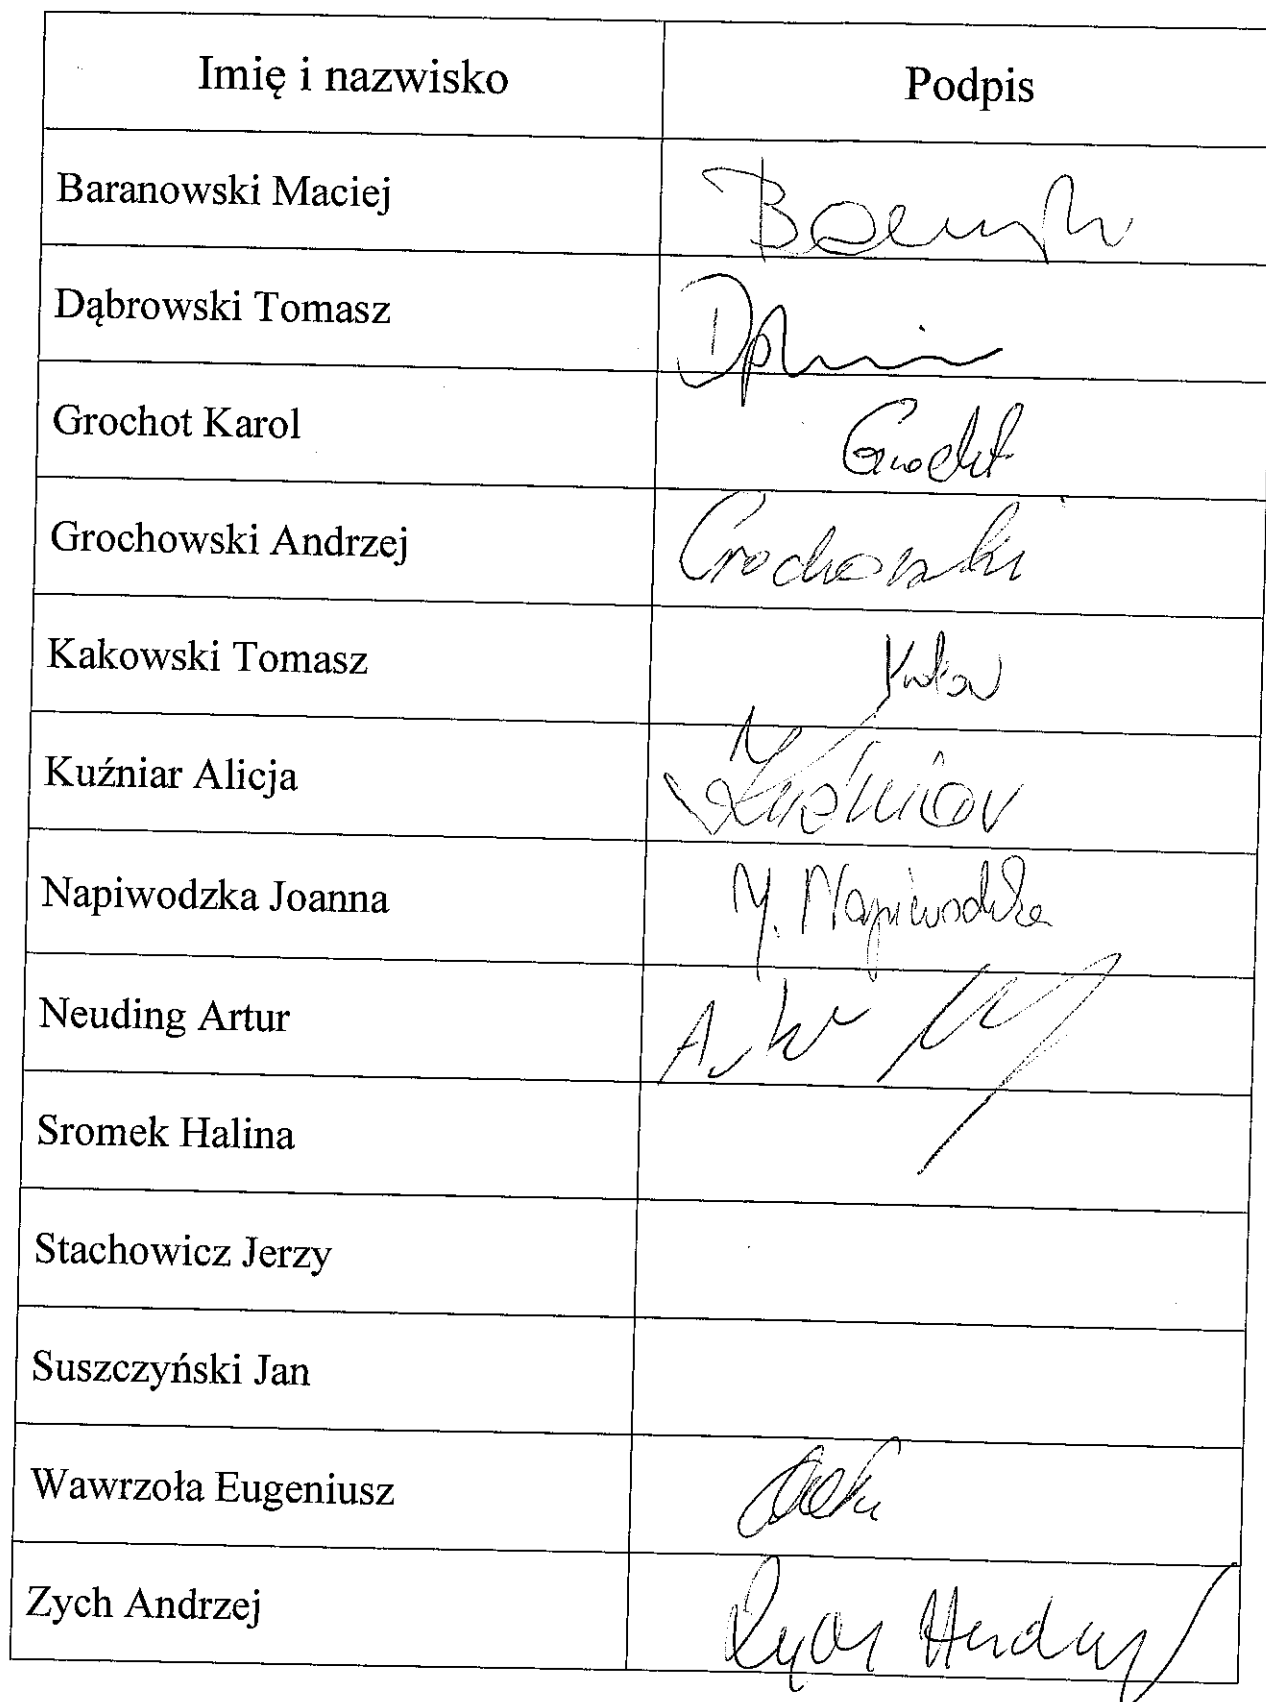 Imię i nazwisko Podpis
Baranowski Maciej
Dąbrowski Tomasz
Grochot Karol Grochot
Grochowski Andrzej Grochowski
Kakowski Tomasz
Kuźniar Alicja Kuźniar
Napiwodzka Joanna Napiwodzka
Neuding Artur Artur
Sromek Halina
Stachowicz Jerzy
Suszczyński Jan
Wawrzoła Eugeniusz
Zych Andrzej Zych Andrzej